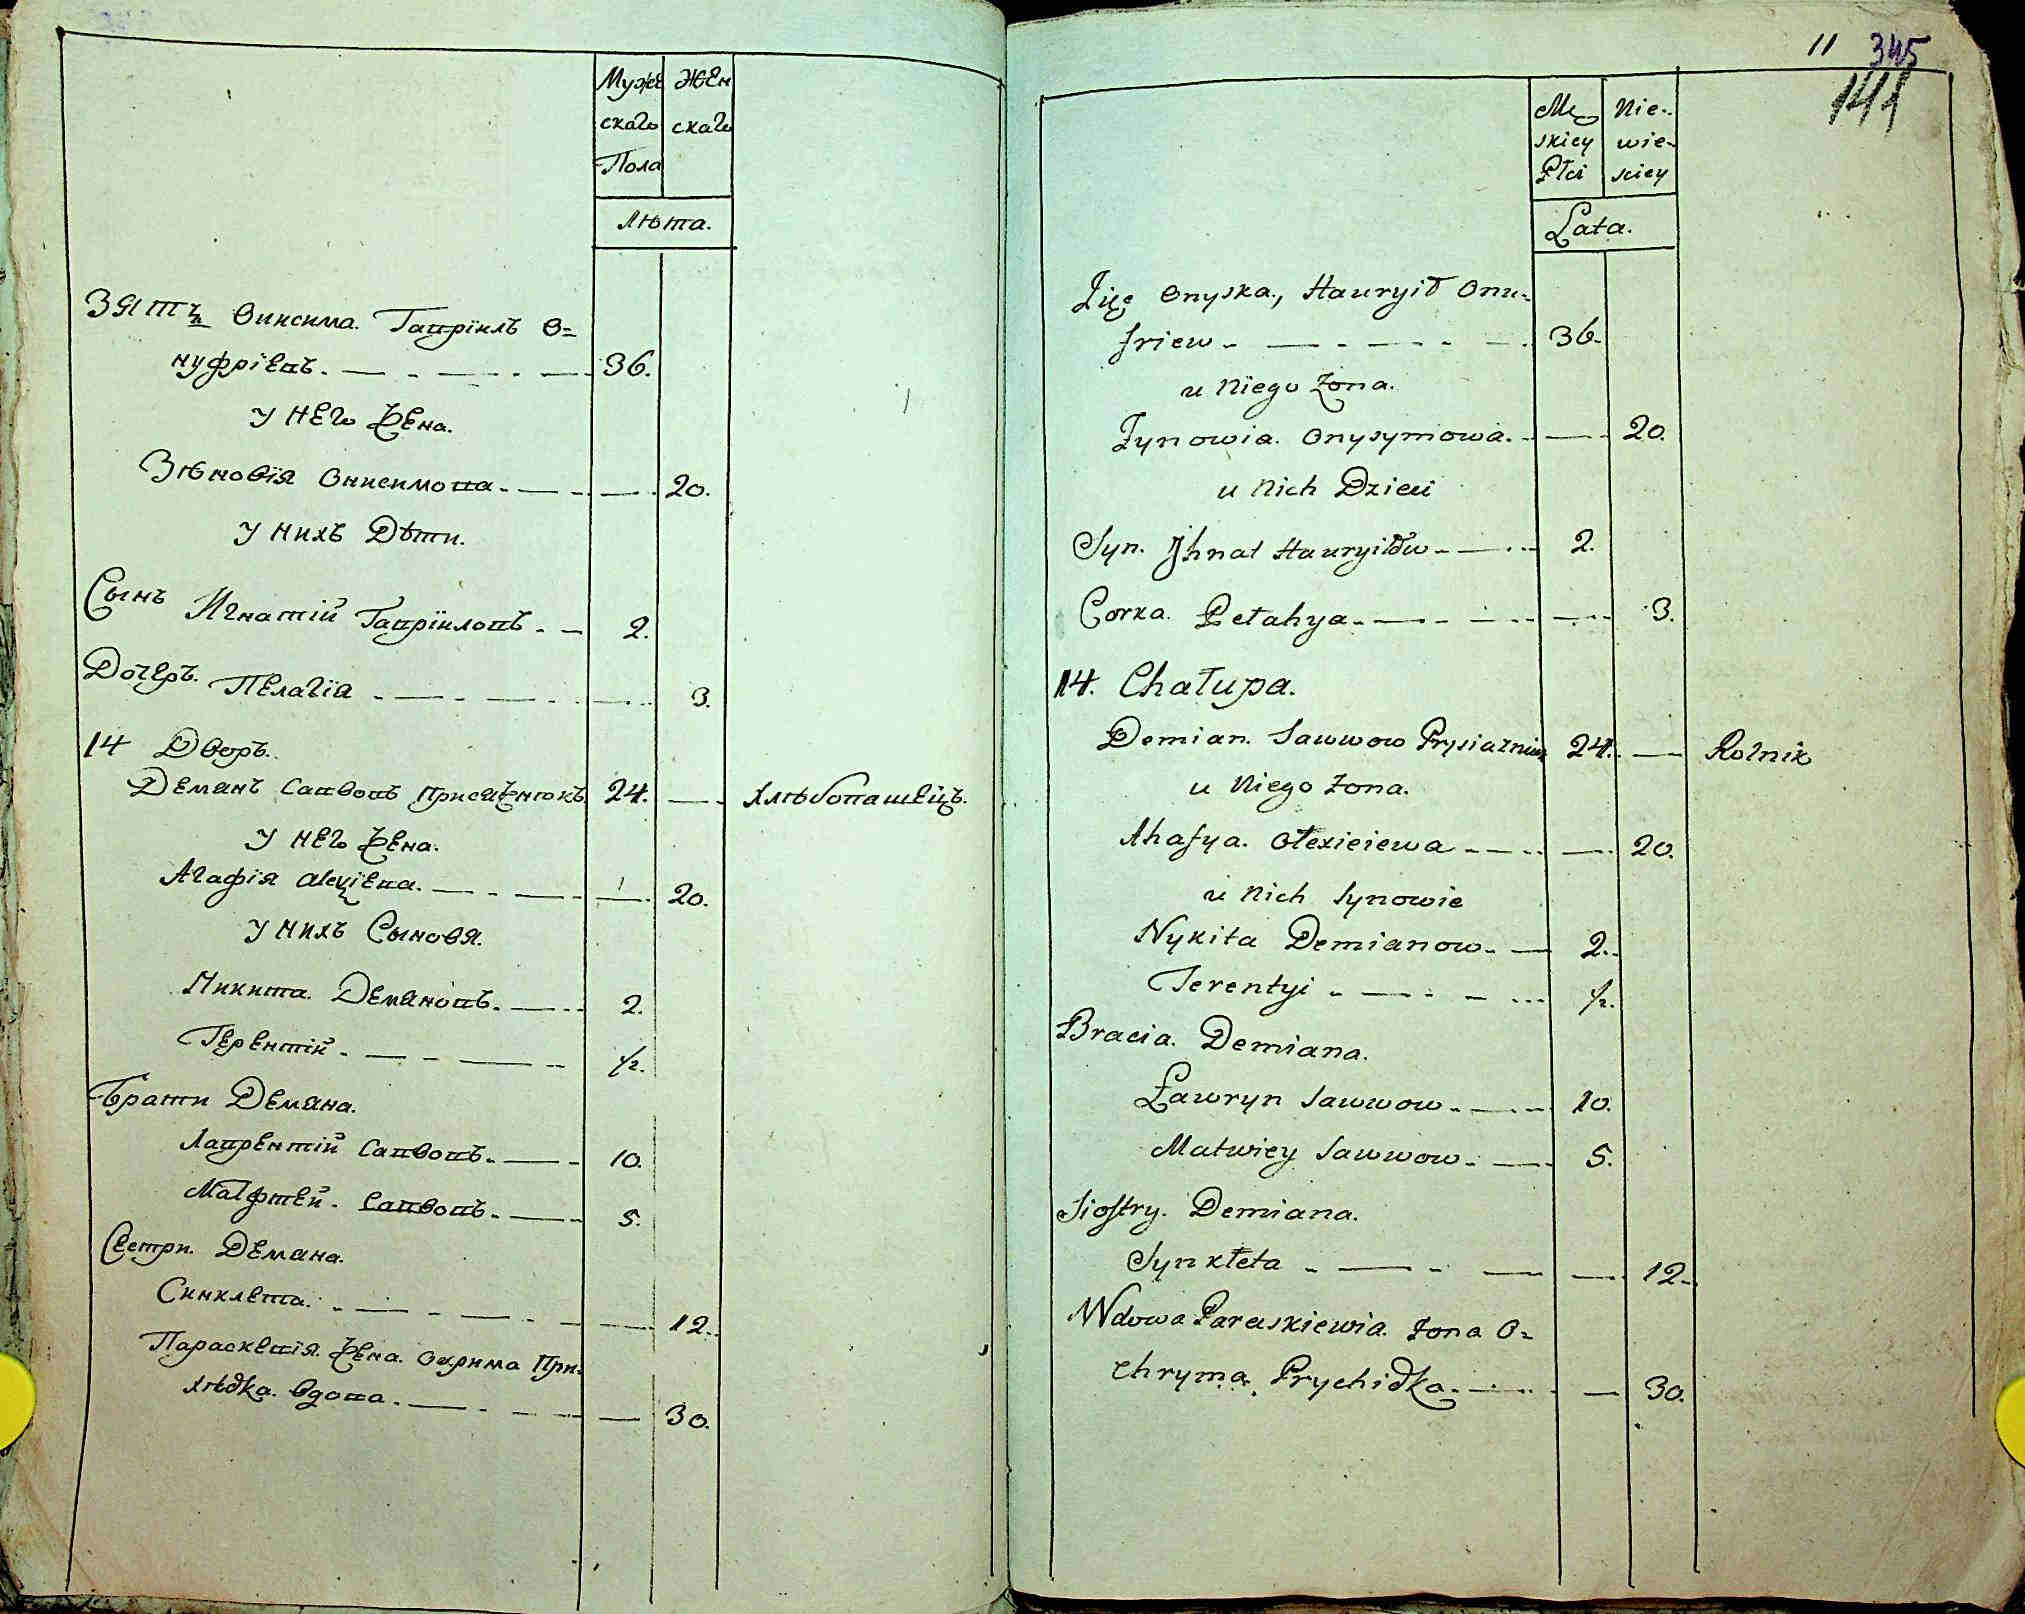 Муже Жен
скаго скаго
Пола
Лѣта.
ЗЯТЪ Онисима. Гавріилъ О=
нуфріевъ. 36.
у него Жена.
Зѣновія Онисимова. 20.
у нихъ Дѣти.
Сынъ Игнатій Гавріиловъ. 2.
Дочеръ. Пелагія 3.
14 Дворъ.
Демянъ Саввовъ Присяжнюкъ 24. Хлѣбопашецъ.
у него Жена.
Агафія Алекѣева. 20.
у нихъ Сыновя.
Никита. Демяновъ. 2.
Терентій. 1/2.
Брати Демяна.
Лаврентій Саввовъ. 10.
Матфтей. Саввовъ. 5.
Сестри. Демяна.
Синклета. 12.
Параскевія. Жена. Охрима При=
хѣдка. вдова. 30.
11 345
141
Mę Nie=
skiey wie=
Płci sciey
Lata.
Zięć Onyska, Hauryił Onu=
friew 36.
u Niego Zona.
Zynowia. Onysymowa. 20.
u Nich Dzieci
Syn. Jhnat Hauryiłow 2.
Corka. Pełahya 3.
14. Chałupa.
Demian. Sawwow Prysiazniuk 24. Rolnik
u Niego Zona.
Ahafya. Ołexieiewa 20.
u Nich Synowie
Nykita Demianow. 2.
Terentyi 1/2.
Bracia. Demiana.
Ławryn Sawwow 10.
Matwiey Sawwow. 5.
Siostry. Demiana.
Synkłeta 12.
Wdowa Paraskiewia. Zona O=
chryma. Prychidka. 30.